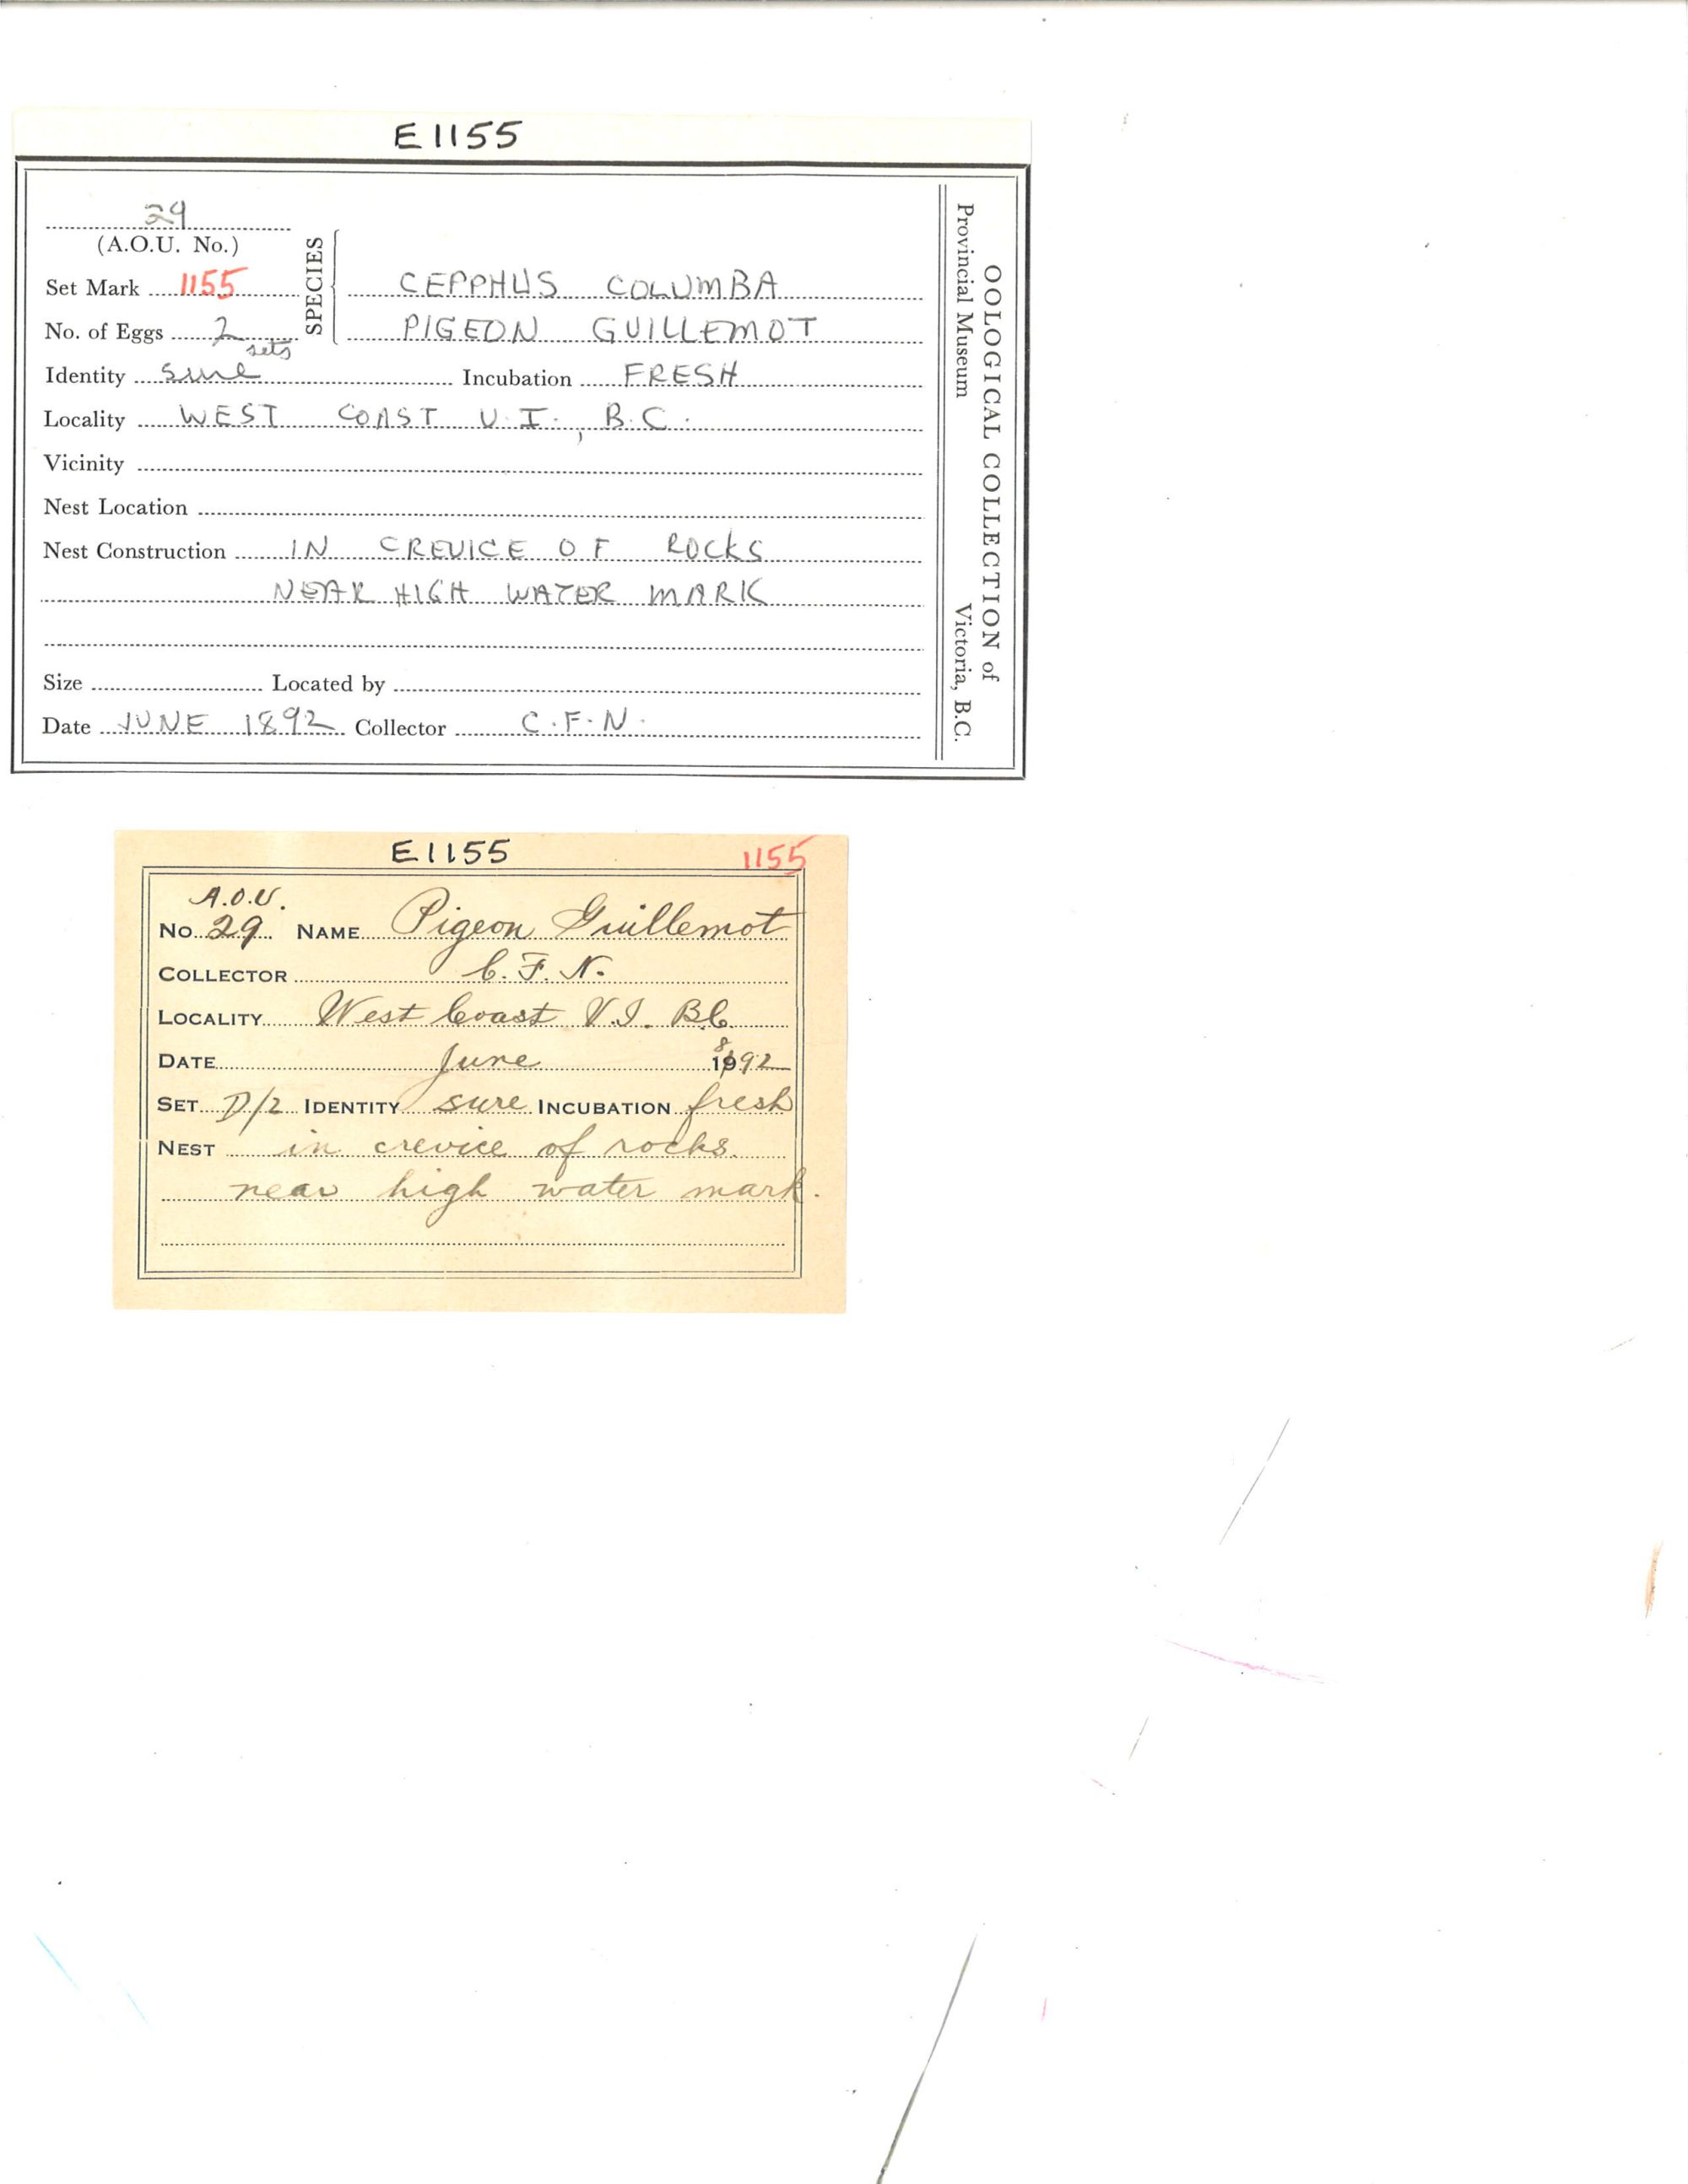 E1155
29
(A.O.U. No.)
Set Mark 1155
No. of Eggs 2 sets
SPECIES
CEPPHUS COLUMBA
PIGEON GUILLEMOT
Identity sure Incubation FRESH
Locality WEST COAST V.I., B.C.
Vicinity
Nest Location
Nest Construction IN CREVICE OF ROCKS
NEAR HIGH WATER MARK
Size Located by
Date JUNE 1892 Collector C.F.N.
OOLOGICAL COLLECTION of
Provincial Museum Victoria, B.C.
E1155 1155
A.O.U.
No. 29 NAME Pigeon Guillemot
COLLECTOR C.F.N.
LOCALITY West Coast V.I. B.C.
DATE June 1892
SET D/2 IDENTITY sure INCUBATION fresh
NEST in crevice of rocks
near high water mark.